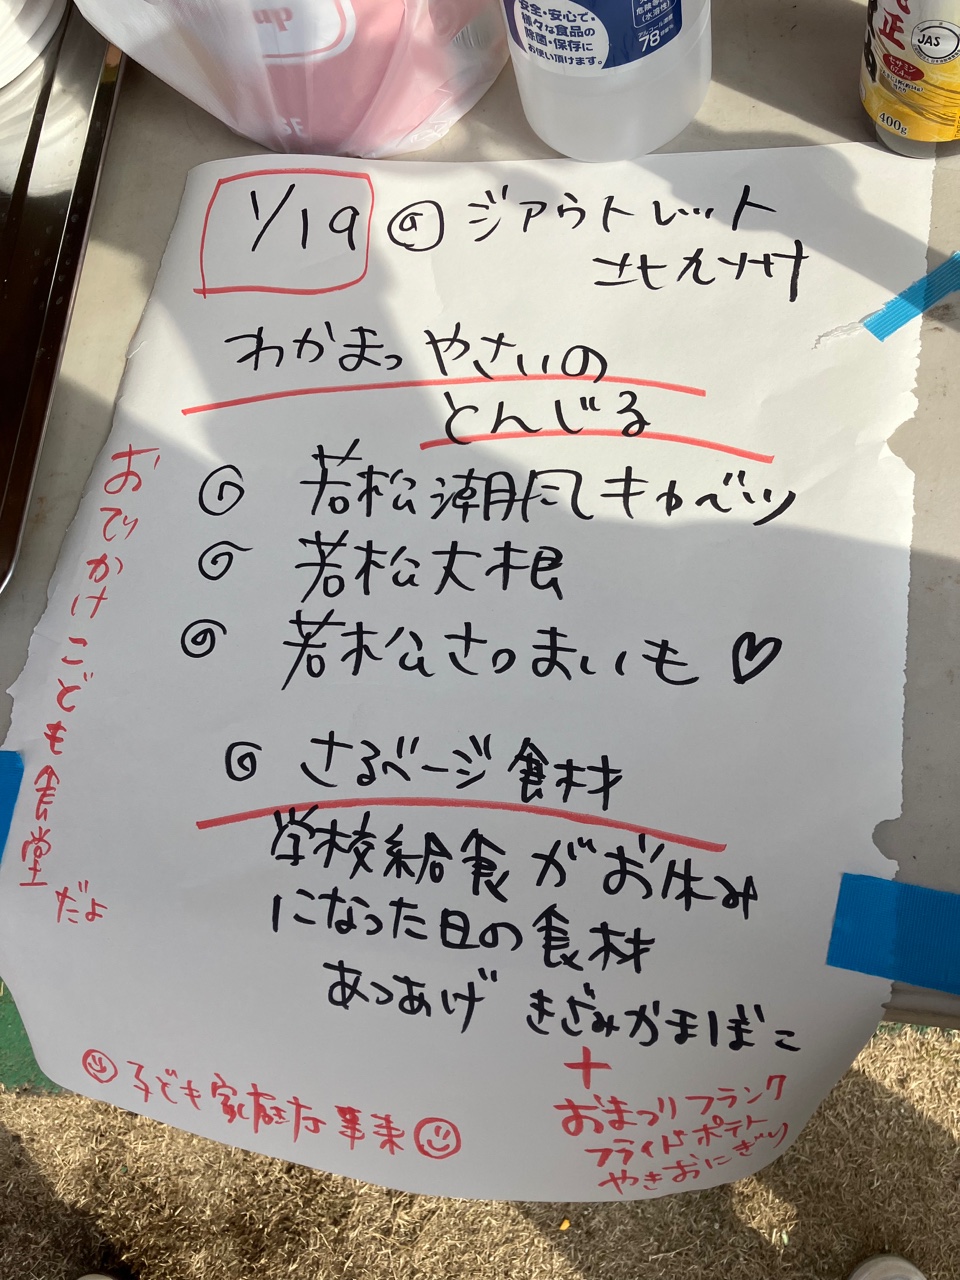 安全・安心で・
様々な食品の
除菌・保存に
お使い頂けます。
78
JAS
セサミン
400g
1/19 @ ジアウトレット
北九州
わかまつ やさいの
とんじる
若松潮風キャベツ
若松大根
若松さつまいも ♡
さるベージ食材
学校給食がお休み
になった日の食材
あつあげ きざみかまぼこ
+
おまつりフランク
フライドポテト
やきおにぎり
おでかけこども食堂
だよ
子ども家庭庁事業